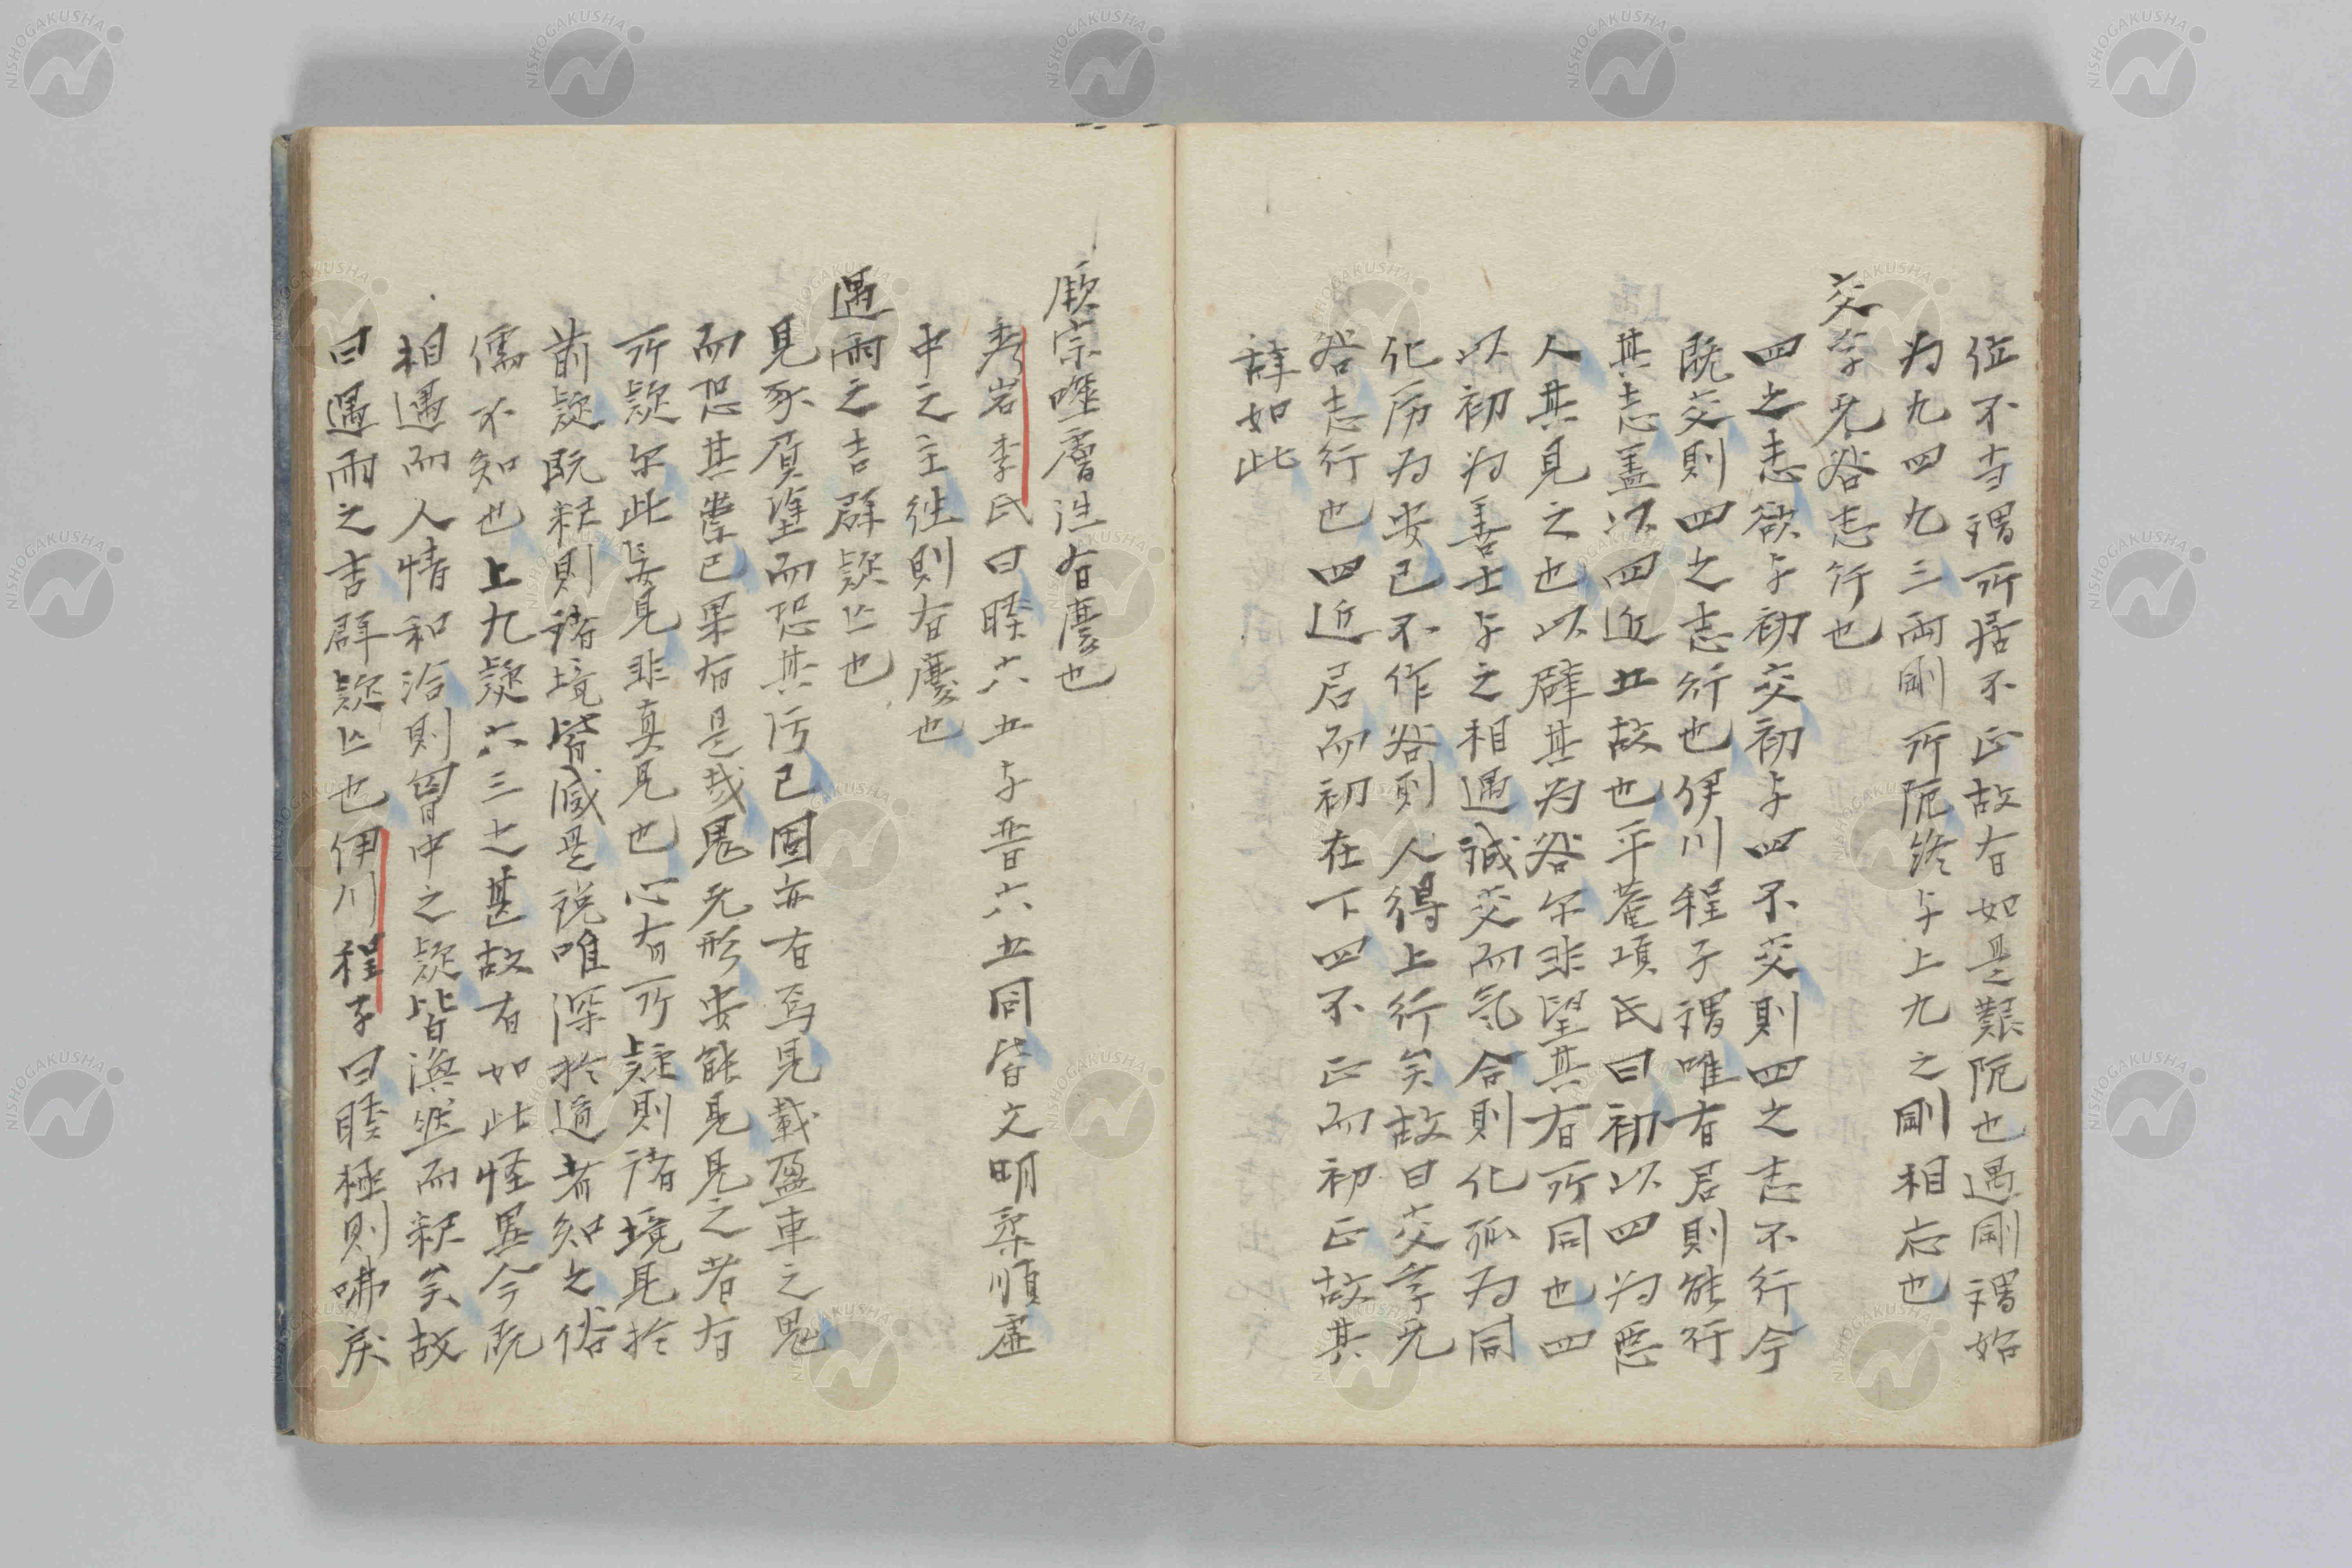 位不当謂所居不正故有如是艱阨也遇剛謂始
为九四九三両剛所阨終与上九之剛相応也
交孚无咎志行也
四之志欲与初交初与四不交則四之志不行今
既交則四之志行也伊川程子謂唯有君則能行
其志盖以四近五故也平菴項氏曰初以四为悪
人其見之也以辟其为咎尔非望其有所同也四
以初为善士与之相遇誠交而気合則化孤为同
化厉为安已不作咎則人得上行矣故曰交孚无
咎志行也四近君而初在下四不正而初正故其
辞如此
厥宗噬膚往有慶也
秀岩李氏曰睽六五与晋六五同皆文明柔順虚
中之主往則有慶也
遇雨之吉群疑亡也
見豕負塗而恐其汚已固亦有焉見載盈車之鬼
而恐其祟已果有是哉鬼无形安能見見之者有
所疑尔此妄見非真見也心有所疑則諸境見於
前疑既釈則諸境皆滅是説唯深於道者知之俗
儒不知也上九疑六三之甚故有如此怪異今既
相遇而人情和洽則胷中之疑皆渙然而釈矣故
曰遇雨之吉群疑亡也伊川程子曰睽極則咈戻
NISHOGAKUSHA